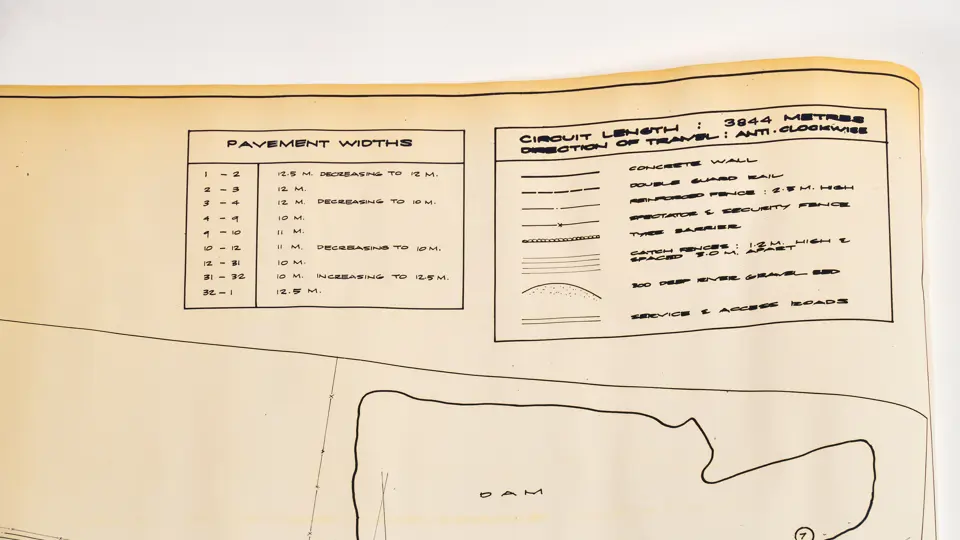 PAVEMENT WIDTHS
1 - 2 12.5 M. DECREASING TO 12 M.
2 - 3 12 M.
3 - 4 12 M. DECREASING TO 10 M.
4 - 9 10 M.
9 - 10 11 M.
10 - 12 11 M. DECREASING TO 10 M.
12 - 31 10 M.
31 - 32 10 M. INCREASING TO 12.5 M.
32 - 1 12.5 M.
CIRCUIT LENGTH : 3844 METRES
DIRECTION OF TRAVEL : ANTI-CLOCKWISE
CONCRETE WALL
DOUBLE GUARD RAIL
REINFORCED FENCE : 2.5 M. HIGH
SPECTATOR & SECURITY FENCE
TYRE BARRIER
CATCH FENCES : 1.2 M. HIGH &
SPACED 3.0 M. APART
300 DEEP RIVER GRAVEL BED
SERVICE & ACCESS ROADS
DAM
7